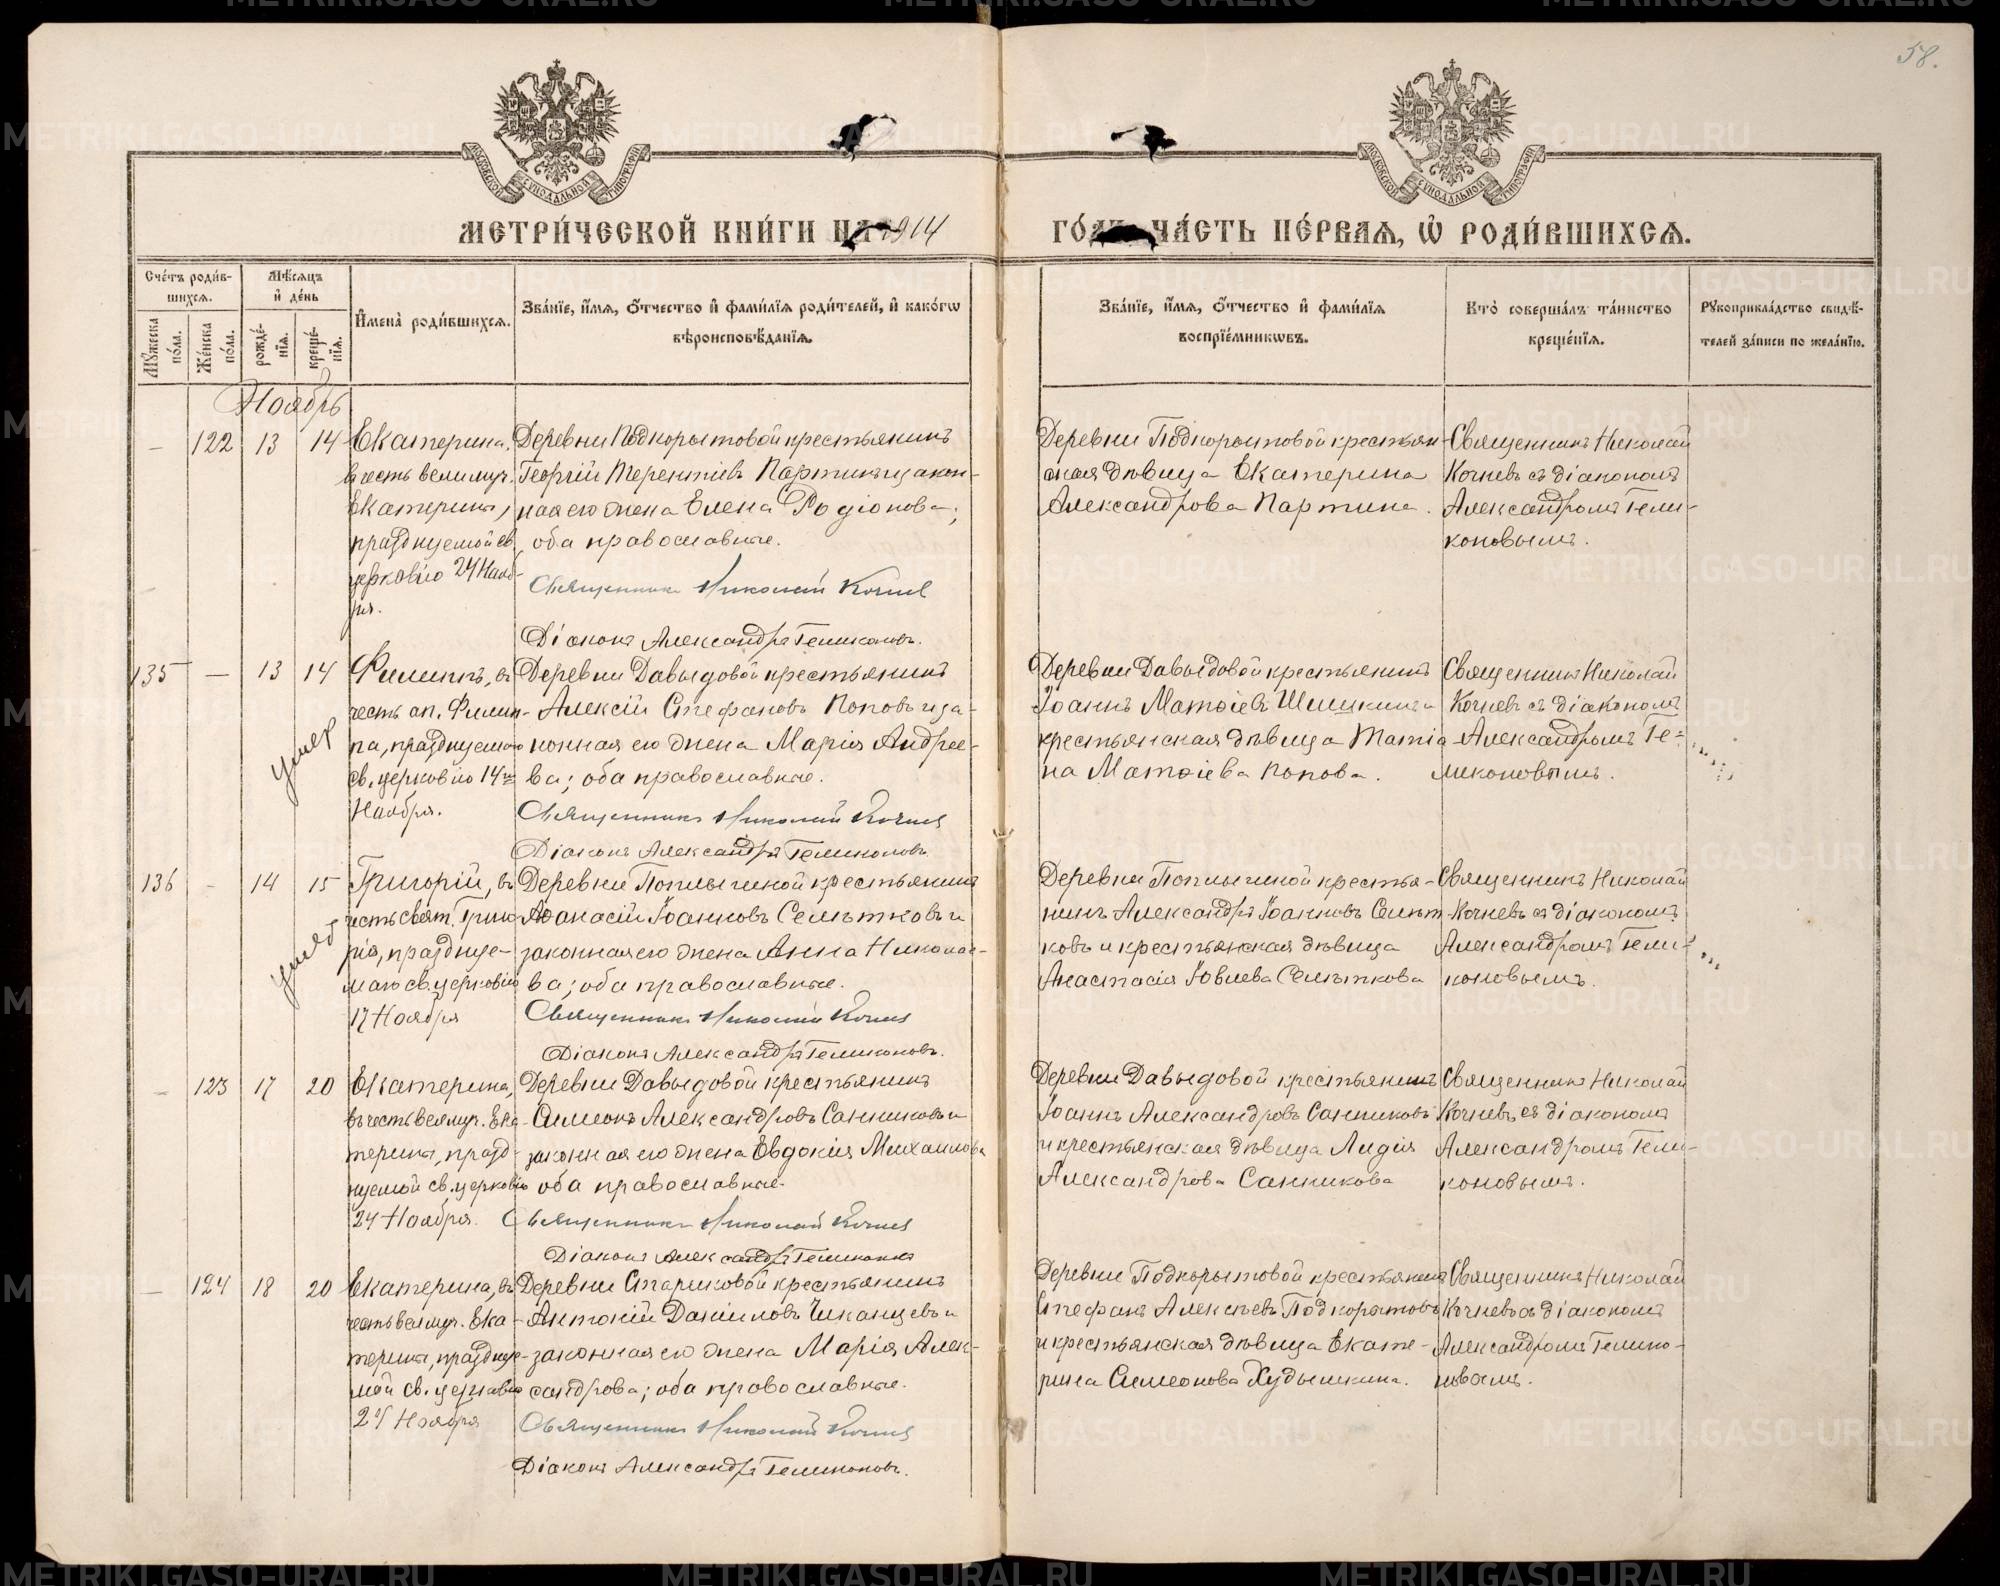 58.
МЕТРИ́ЧЕСКОЙ КНИ́ГИ НА 1914
ГО́ДЪ ЧА́СТЬ ПЕ́РВАѦ, Ѡ РОДИ́ВШИХСѦ.
Сче́тъ роди́в-
шихсѧ.
Мѣ́сѧцъ
и҆ де́нь
И҆мена̀ роди́вшихсѧ.
Зва́нїе, и҆́мѧ, ѻ҆́тчество и҆ фами́лїѧ роди́телей, и҆ како́гѡ
вѣроисповѣ́данїѧ.
Мꙋ́жеска
по́ла.
Же́нска
по́ла.
рожде́-
нїѧ.
креще́-
нїѧ.
Зва́нїе, и҆́мѧ, ѻ҆́тчество и҆ фами́лїѧ
воспрїе́мникѡвъ.
Кто̀ соверша́лъ та́инство
креще́нїѧ.
Рꙋкоприкла́дство свидѣ́-
телей за́писи по жела́нїю.
Ноябрь
— 122 13 14
Екатерина,
въ честь великмуч.
Екатерины,
празднуемой св.
церковію 24 Нояб-
ря.
Деревни Подкорытовой крестьянинъ
Георгій Терентіевъ Партинъ и закон-
ная его жена Елена Родіонова;
оба православные.
Священникъ Николай Кочнев
Діаконъ Александръ Геликоновъ.
Деревни Подкорытовой крестьян-
ская дѣвица Екатерина
Александрова Партина.
Священникъ Николай
Кочневъ съ діакономъ
Александромъ Гели-
коновымъ.
135 — 13 14
умер
Филиппъ, въ
честь ап. Филип-
па, празднуемаго
св. церковію 14го
Ноября.
Деревни Давыдовой крестьянинъ
Алексій Стефановъ Поповъ и за-
конная его жена Марія Андрее-
ва; оба православные.
Священникъ Николай Кочнев
Діаконъ Александръ Геликоновъ.
Деревни Давыдовой крестьянинъ
Іоаннъ Матѳіевъ Шишкинъ и
крестьянская дѣвица Татіа-
на Матѳіева Попова.
Священникъ Николай
Кочневъ съ діакономъ
Александромъ Ге-
ликоновымъ.
136 - 14 15
умер
Григорій, въ
честь свят. Григо-
рія, праздnуе-
маго св. церковію
17 Ноября
Деревни Поплыгиной крестьянинъ
Аѳанасій Іоанновъ Семѣтковъ и
законная его жена Анна Николае-
ва; оба православные.
Священникъ Николай Кочнев
Діаконъ Александръ Геликоновъ.
Деревни Поплыгиной крестья-
нинъ Александръ Іоанновъ Семѣт-
ковъ и крестьянская дѣвица
Анастасія Іовлева Семѣткова
Священникъ Николай
Кочневъ съ діакономъ
Александромъ Гели-
коновымъ.
— 123 17 20
Екатерина,
въ честь великмуч. Ека-
терины, празд-
нуемой св. церковію
24 Ноября.
Деревни Давыдовой крестьянинъ
Симеонъ Александровъ Санниковъ и
законная его жена Евдокія Михаилова
оба православные.
Священникъ Николай Кочнев
Діаконъ Александръ Геликоновъ
Деревни Давыдовой крестьянинъ
Іоаннъ Александровъ Санниковъ
и крестьянская дѣвица Лидія
Александрова Санникова
Священникъ Николай
Кочневъ съ діакономъ
Александромъ Гели-
коновымъ.
— 124 18 20
Екатерина, въ
честь великмуч. Ека-
терины, праздnуе-
мой св. церковію
24 Ноября
Деревни Стариковой крестьянинъ
Антоній Даніиловъ Чиканцевъ и
законная его жена Марія Алек-
сандрова; оба православные.
Священникъ Николай Кочнев
Діаконъ Александръ Геликоновъ.
Деревни Подкорытовой крестьянинъ
Стефанъ Алексѣевъ Подкорытовъ
и крестьянская дѣвица Екате-
рина Симеонова Худышкина.
Священникъ Николай
Кочневъ съ діакономъ
Александромъ Гелико-
новымъ.